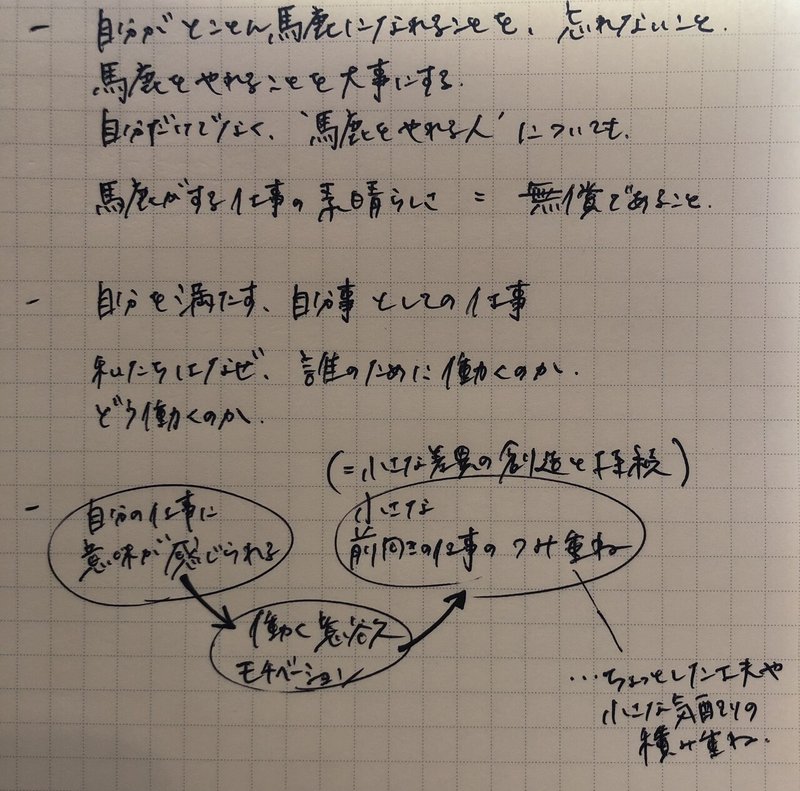 - 自分がとことん馬鹿になれることを、忘れないこと.
馬鹿をやれることを大事にする.
自分だけでなく、'馬鹿をやれる人'についても.
馬鹿がする仕事の素晴らしさ = 無償であること.
- 自分を満たす、自分事としての仕事
私たちはなぜ、誰のために働くのか.
どう働くのか.
(=小さな差異の創造と持続)
- 自分の仕事に
意味が感じられる
小さな
前向きの仕事のつみ重ね
働く意欲
モチベーション
…ちょっとした工夫や
小さな気配りの
積み重ね.